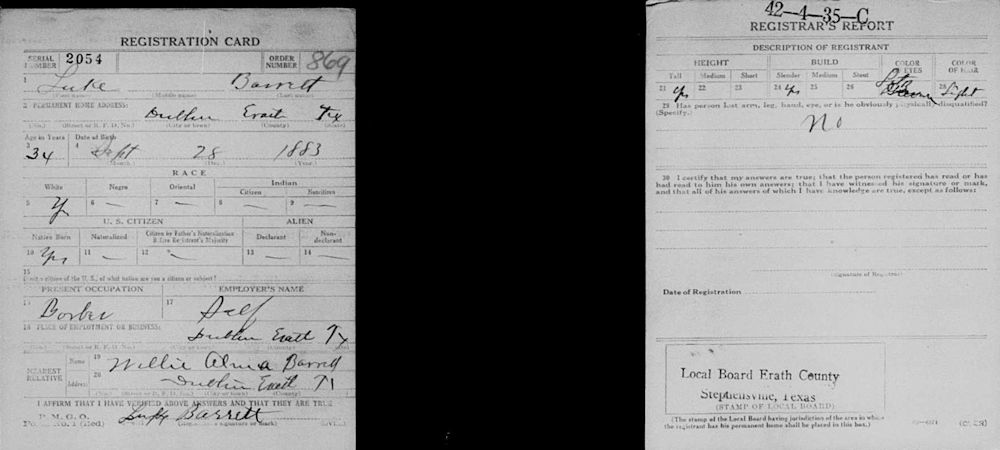 REGISTRATION CARD
SERIAL NUMBER 2054 ORDER NUMBER 869
1 Luke Barrett
(First name) (Middle name) (Last name)
2 PERMANENT HOME ADDRESS:
Dublin Erath Tx
(No.) (Street or R. F. D. No.) (City or town) (County) (State)
Age in Years Date of Birth
3 34 4 Sept 28 1883
(Month.) (Day.) (Year.)
RACE
White Negro Oriental Indian
Citizen Noncitizen
5 6 — 7 — 8 — 9 —
U. S. CITIZEN ALIEN
Native Born Naturalized Citizen by Father's Naturalization Before Registrant's Majority Declarant Non-declarant
10 Yes 11 — 12 — 13 — 14 —
15
If not a citizen of the U. S., of what nation are you a citizen or subject?
PRESENT OCCUPATION EMPLOYER'S NAME
16 Barber 17 Self
18 PLACE OF EMPLOYMENT OR BUSINESS:
Dublin Erath Tx
(No.) (Street or R. F. D. No.) (City or town) (County) (State)
NEAREST RELATIVE Name 19 Willie Alma Barrett
Address 20 Dublin Erath Tx
(No.) (Street or R. F. D. No.) (City or town) (County) (State)
I AFFIRM THAT I HAVE VERIFIED ABOVE ANSWERS AND THAT THEY ARE TRUE
P. M. G. O.
Form No. 1 (Red) Luke Barrett
(Registrant's signature or mark) (OVER)
42-4-35-C
REGISTRAR'S REPORT
DESCRIPTION OF REGISTRANT
HEIGHT BUILD COLOR OF EYES COLOR OF HAIR
Tall Medium Short Slender Medium Stout
21 Yes 22 23 24 Yes 25 26 28 Light
29 Has person lost arm, leg, hand, eye, or is he obviously physically disqualified?
(Specify.)
No
30 I certify that my answers are true; that the person registered has read or has
had read to him his own answers; that I have witnessed his signature or mark,
and that all of his answers of which I have knowledge are true, except as follows:
(Signature of Registrar)
Date of Registration
Local Board Erath County
Stephensville, Texas
(STAMP OF LOCAL BOARD)
(The stamp of the Local Board having jurisdiction of the area in which
the registrant has his permanent home shall be placed in this box.)
(OVER)